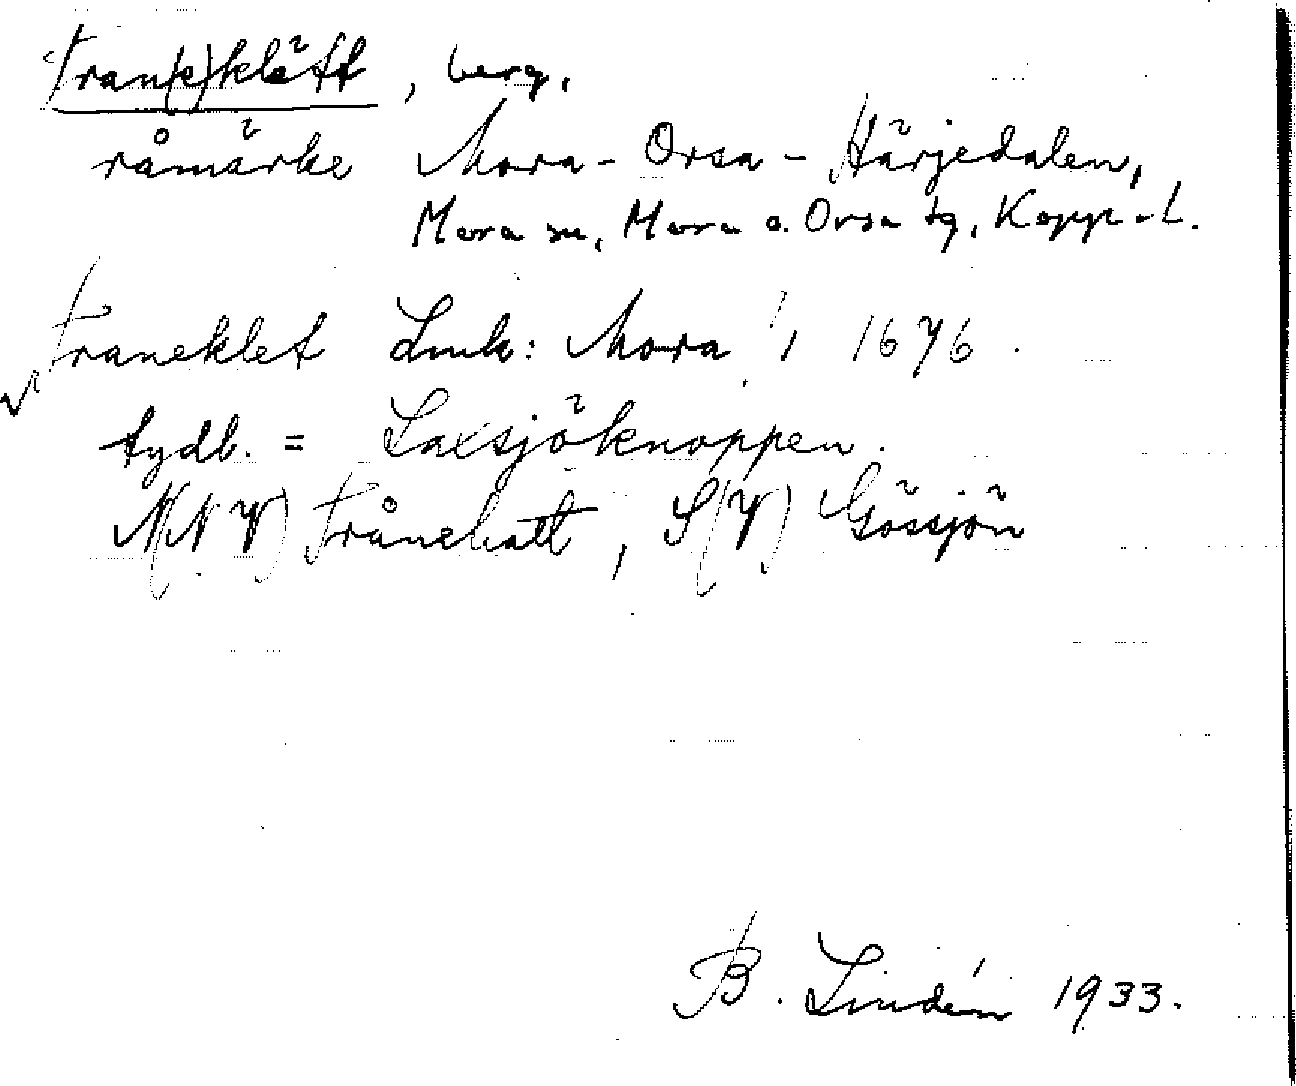 Tran(e)klätt, berg,
råmärke Mora - Orsa - Härjedalen,
Mora sn, Mora o. Orsa tg, Kopp. l.
Traneklet Lmh: Mora 1, 1676.
tydl. = Laxsjöknoppen.
N(N.V) Trånehatt, S(V) Gössjön
B. Lindén 1933.